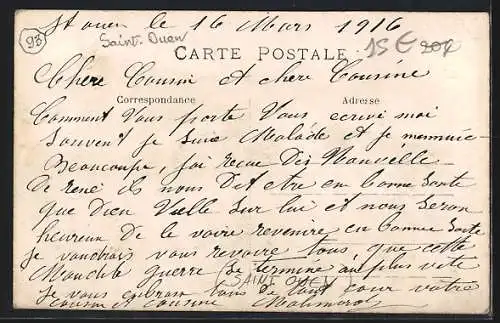 St ouen le 16 Mars 1916
93 Saint-Ouen 15€
CARTE POSTALE
Chère Cousin et chère Cousine
Correspondance Adresse
Comment Vous porte Vous ecrivé moi
Souvent je suis Malade et je mennuie
Beaucoupe, jai recue Des Nouvelle
De rené ils nous Dit etre en bonne Sante
que Dieu Veille Sur lui et nous Seron
heureux de le voire revenire en bonne Sante
je voudrais vous revoire tous, que cette
Maudite guerre Se termine au plus vite
(SAINT OUEN)
Je vous embrasse tous de tout cour votre
cousin et cousine